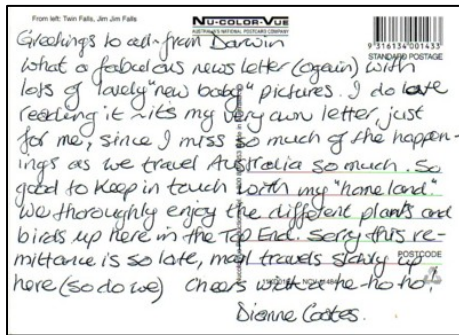 From left: Twin Falls, Jim Jim Falls
NU-COLOR-VUE
AUSTRALIA'S NATIONAL POSTCARD COMPANY
9 316134 001433
STANDARD POSTAGE
Greetings to all from Darwin
What a fabulous news letter (again) with
lots of lovely "new baby" pictures. I do love
reading it ~ it's my very own letter, just
for me, since I miss so much of the happen-
ings as we travel Australia so much. So
good to keep in touch with my "homeland."
We thoroughly enjoy the different plants and
birds up here in the Top End. Sorry this re-
mittance is so late, mail travels slowly up
POSTCODE
here (so do we) Cheers with a he-ho-ho!
Dianne Coates.